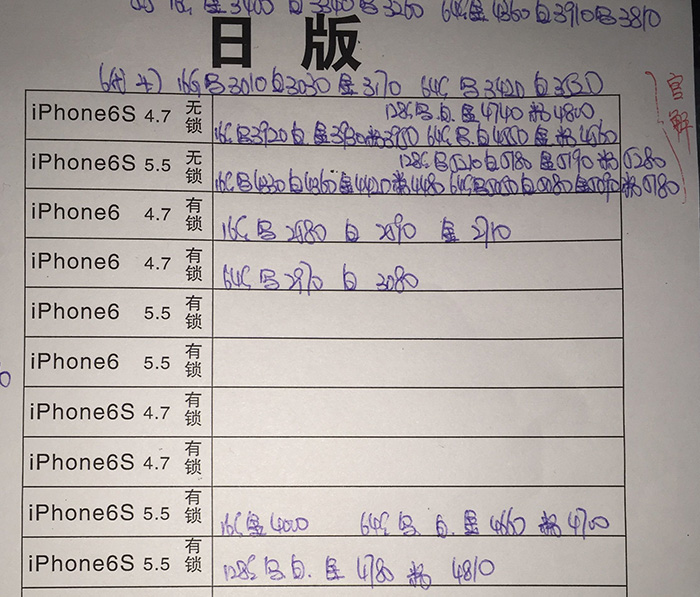 16G 金3400 白3340 3260 64G 金4360 白3910 3810
日版
16G 3010 白3030 金3170 64G 3420 白
官解
iPhone6S 4.7 无锁 128G 白. 金4740 粉4800
16G 3920 白 金3930 粉3950 64G 白4550 金 粉4560
iPhone6S 5.5 无锁 128G 5210 白5180 金5190 粉5280
16G 4230 白4260 金4420 粉4480 64G 5050 白5080 金5090 粉5180
iPhone6 4.7 有锁 16G 2680 白 2690 金 2710
iPhone6 4.7 有锁 64G 2970 白 3080
iPhone6 5.5 有锁
iPhone6 5.5 有锁
iPhone6S 4.7 有锁
iPhone6S 4.7 有锁
iPhone6S 5.5 有锁 16G 金4000 64G 白. 金4660 粉4700
iPhone6S 5.5 有锁 128G 白. 金 4780 粉 4810